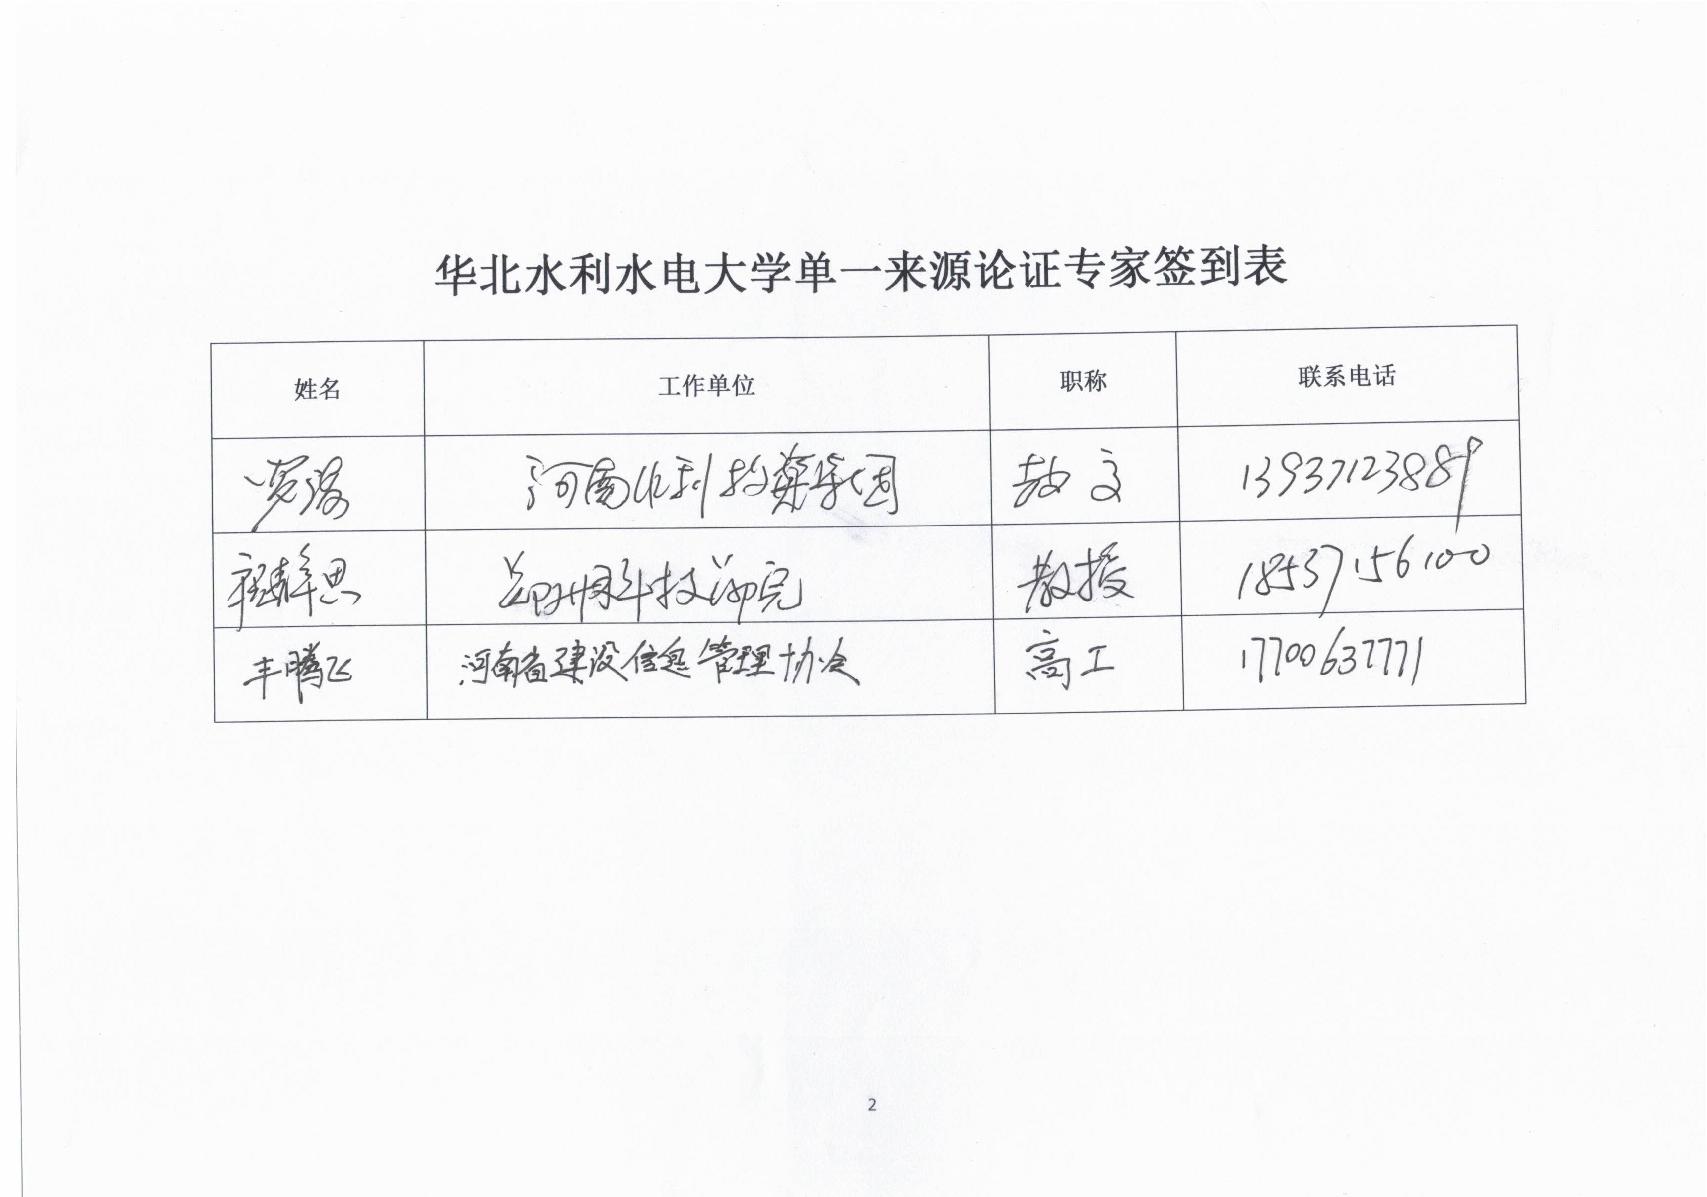 华北水利水电大学单一来源论证专家签到表
姓名 工作单位 职称 联系电话
河南水利投资集团 教高 13937123889
程静思 郑州科技学院 教授 18537156100
丰腾飞 河南省建设信息管理协会 高工 17700637771
2